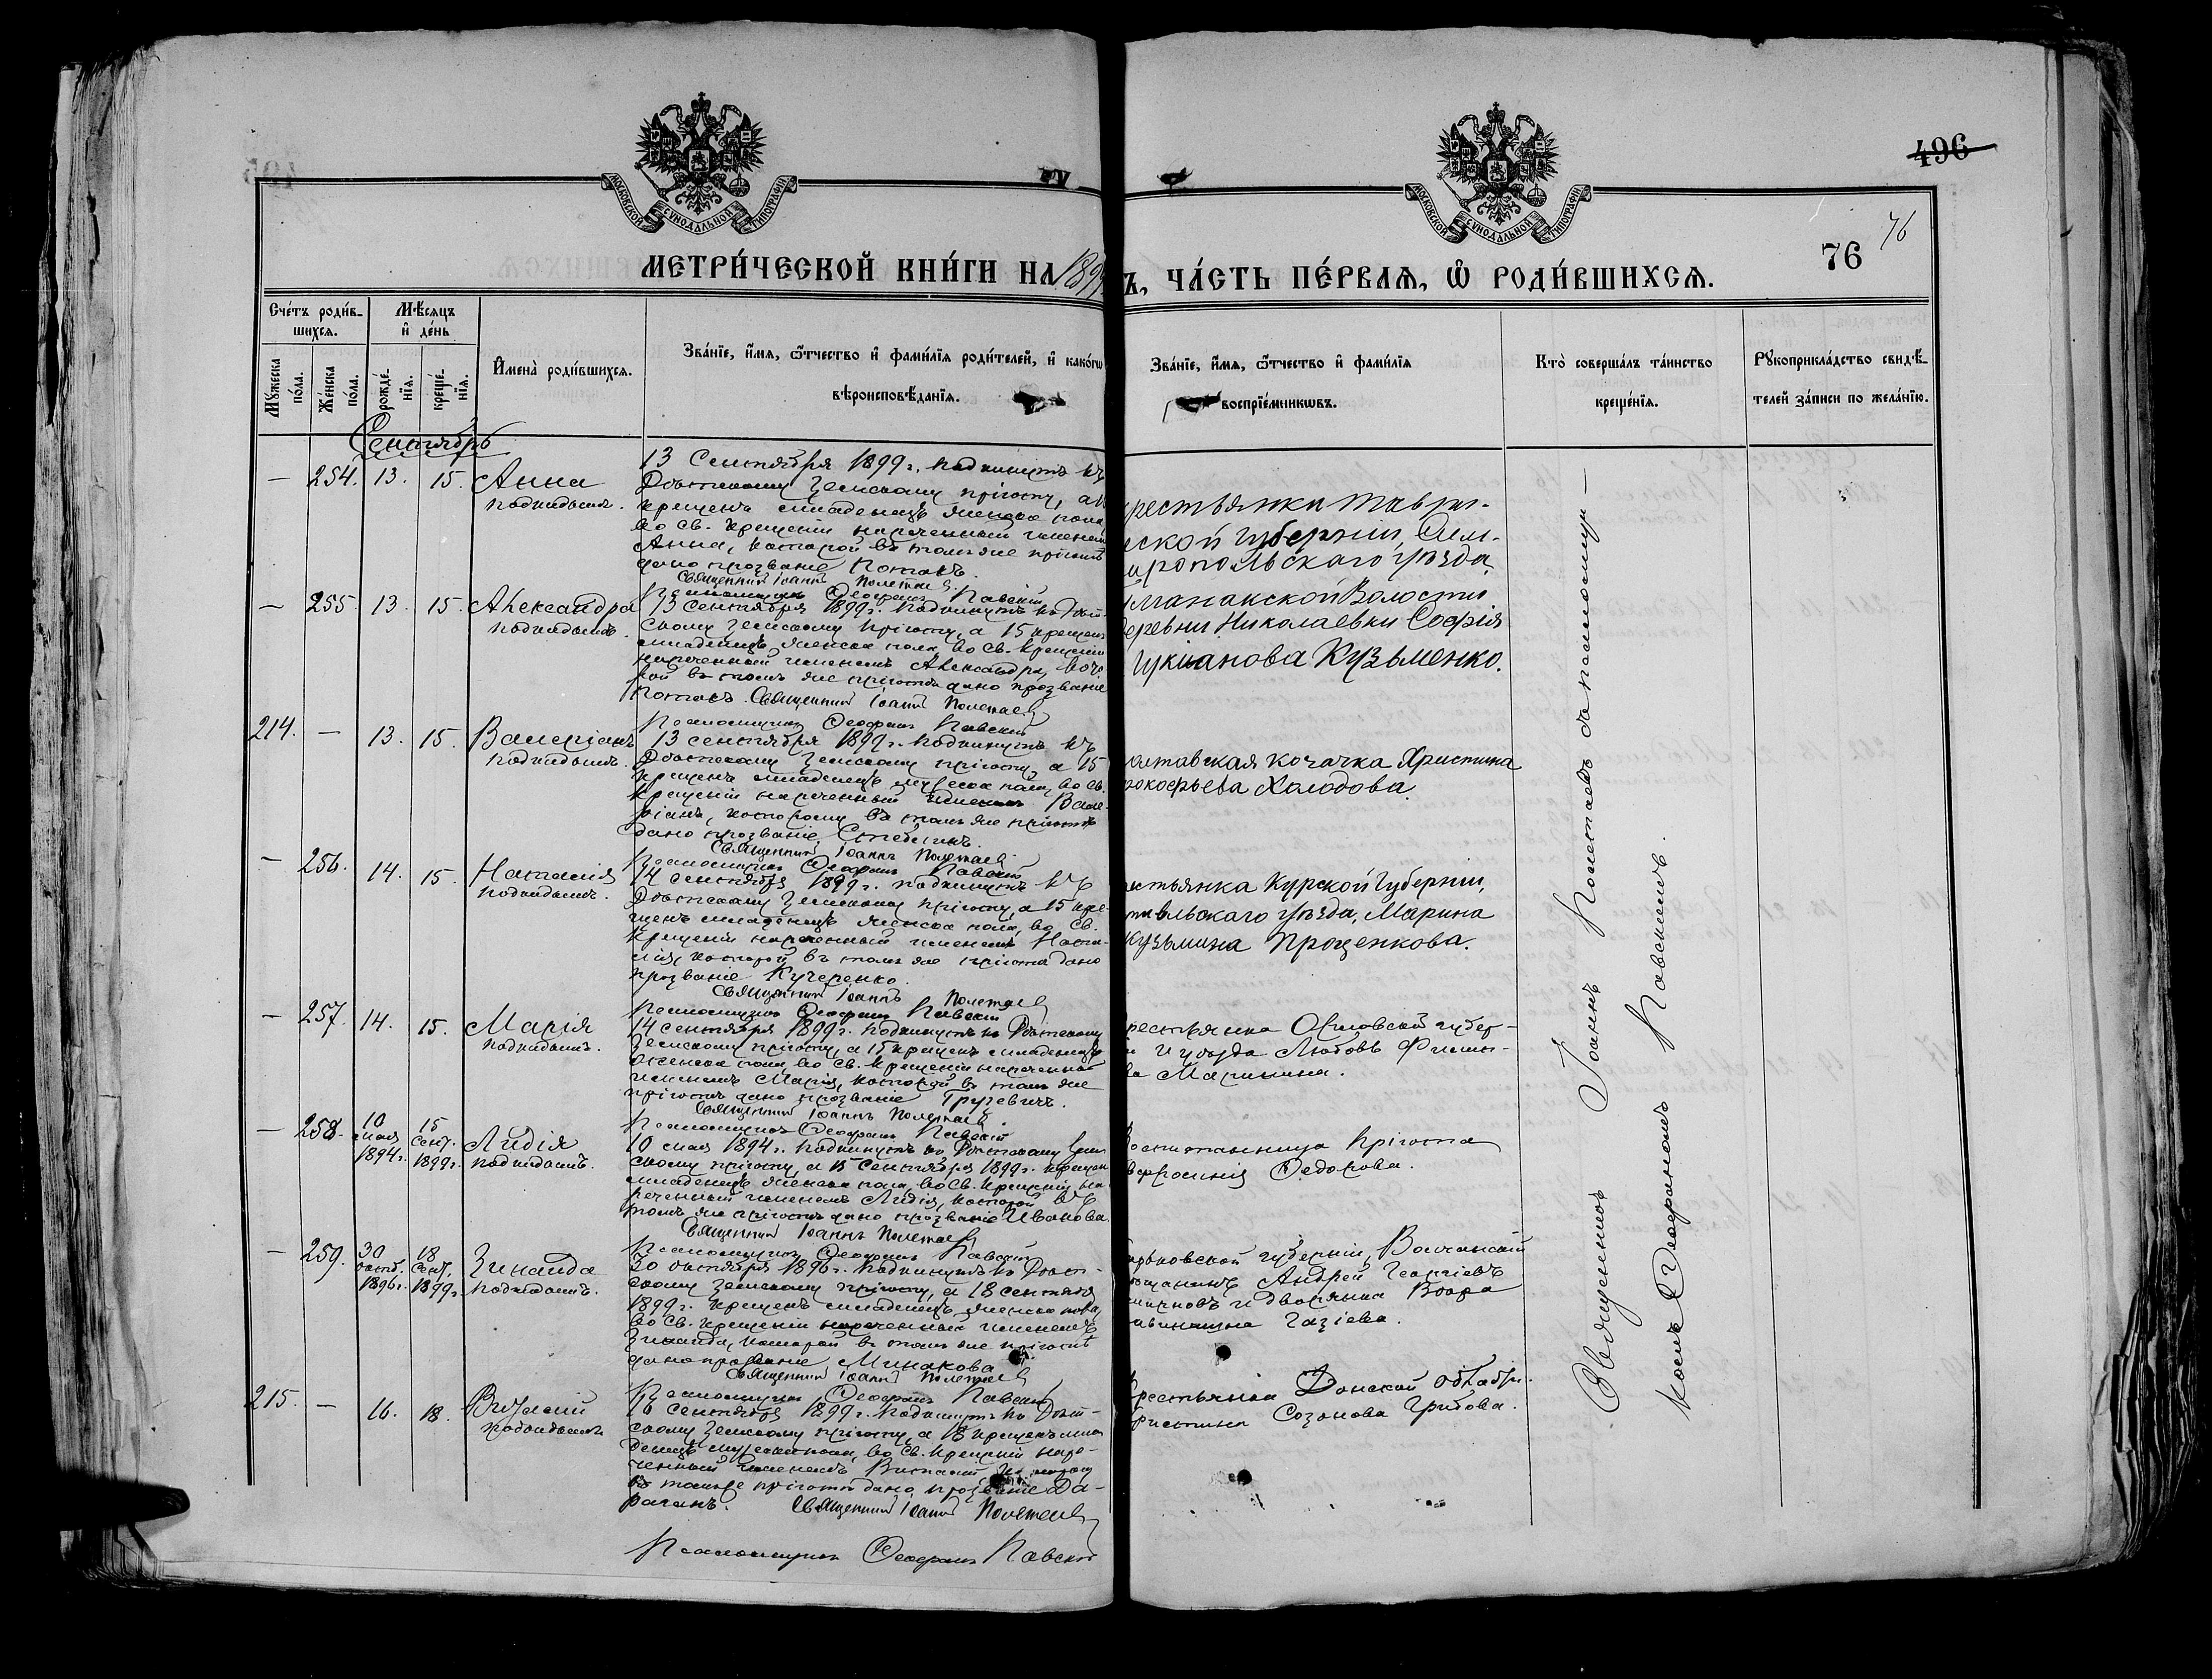 496
МОСКОВСКОЙ СУНОДАЛЬНОЙ ТИПОГРАФІИ
МОСКОВСКОЙ СУНОДАЛЬНОЙ ТИПОГРАФІИ
76
76
МЕТРИ́ЧЕСКОЙ КНИ́ГИ НА 1899
Ъ, ЧА́СТЬ ПЕ́РВАѦ, Ѡ҆ РОДИ́ВШИХСѦ.
Сче́тъ роди́в-
шихсѧ.
Мѣ́сяцъ
и҆ де́нь
Мꙋ́жеска по́ла.
Же́нска по́ла.
рожде́-нїѧ.
креще́-нїѧ.
И҆мена̀ роди́вшихсѧ.
Зва́нїе, и҆́мѧ, ѻ҆́тчество и҆ фами́лїѧ роди́телей, и҆ како́гѡ
вѣроисповѣ́данїѧ.
Зва́нїе, и҆́мѧ, ѻ҆́тчество и҆ фами́лїѧ
воспрїе́мникѡвъ.
Кто̀ соверша́лъ та́инство
креще́нїѧ.
Рꙋкоприкла́дство свидѣ́-
телей за́писи по жела́нїю.
Сентябрь
— 254. 13. 15. Анна
подкидышъ.
13 Сентября 1899 г. подкинутъ къ
земскому пріюту, а 15
крещенъ младенецъ женска пола,
во св. крещеніи нареченный именемъ
Анна, которой въ томъ же пріютѣ
дано прозваніе Потокъ.
Священникъ Іоаннъ Полетаевъ
Псаломщикъ Ѳеофанъ Павскій
рестьянка Таври-
ской губерніи, Сим-
еропольскаго уѣзда,
Волости
деревни Николаевки Софія
Кузьменко.
— 255. 13. 15. Александра
подкидышъ.
13 Сентября 1899 г. подкинутъ къ
скому земскому пріюту, а 15 крещенъ
младенецъ женска пола, во св. крещеніи
нареченный именемъ Александра, кото-
рой въ томъ же пріютѣ дано прозваніе
Потокъ. Священникъ Іоаннъ Полетаевъ
Псаломщикъ Ѳеофанъ Павскій
214. — 13. 15. Валеріанъ
подкидышъ.
13 сентября 1899 г. подкинутъ къ
земскому пріюту, а 15
крещенъ младенецъ мужеска пола, во св.
крещеніи нареченный именемъ Вале-
ріанъ, которому въ томъ же пріютѣ
дано прозваніе
Священникъ Іоаннъ Полетаевъ
Псаломщикъ Ѳеофанъ Павскій
олтавская козачка Христина
рокофьева Холодова.
— 256. 14. 15. Наталія
подкидышъ.
14 сентября 1899 г. подкинутъ къ
земскому пріюту, а 15 кре-
щенъ младенецъ женска пола, во св.
крещеніи нареченный именемъ Ната-
лія, которой въ томъ же пріютѣ дано
прозваніе Кучеренко.
Священникъ Іоаннъ Полетаевъ
Псаломщикъ Ѳеофанъ Павскій
естьянка Курской Губерніи,
тивльскаго уѣзда, Марина
Кузьмина Проценкова.
— 257. 14. 15. Марія
подкидышъ.
14 сентября 1899 г. подкинутъ къ
земскому пріюту, а 15 крещенъ младенецъ
женска пола, во св. крещеніи нареченный
именемъ Марія, которой въ томъ же
пріютѣ дано прозваніе
Священникъ Іоаннъ Полетаевъ
Псаломщикъ Ѳеофанъ Павскій
рестьянка Орловской губер-
и уѣзда Любовь
ва Маринина.
— 258. 10 мая 1894 г. 15 Сент. 1899 г. Лидія
подкидышъ.
10 мая 1894 г. подкинутъ къ
скому пріюту, а 15 Сентября 1899 г. крещенъ
младенецъ женска пола, во Св. крещеніи на-
реченный именемъ Лидія, которой въ
томъ же пріютѣ дано прозваніе Иванова.
Священникъ Іоаннъ Полетаевъ
Псаломщикъ Ѳеофанъ Павскій
оспитанница Пріюта
вфросинія Ѳедорова.
— 259. 30 октб. 1896 г. 18 Сент. 1899 г. Зинаида
подкидышъ.
30 октября 1896 г. подкинутъ къ
скому земскому пріюту, а 18 сентября
1899 г. крещенъ младенецъ женска пола,
во св. крещеніи нареченный именемъ
Зинаида, которой въ томъ же пріютѣ
дано прозваніе Минакова
Священникъ Іоаннъ Полетаевъ
Псаломщикъ Ѳеофанъ Павскій
арьковской губерніи, Волчанскій
ѣщанинъ Андрей Георгіевъ
и дворянка Вѣра
Газіева.
215. — 16. 18. Виталій
подкидышъ
16 сентября 1899 г. подкинутъ къ
скому земскому пріюту, а 18 крещенъ мла-
денецъ мужеска пола, во св. крещеніи наре-
ченный именемъ Виталій,
въ томъ же пріютѣ дано прозваніе
Священникъ Іоаннъ Полетаевъ
Псаломщикъ Ѳеофанъ Павскій
рестьянка Донской области
ристина Созонова Грибова.
Священникъ Іоаннъ Полетаевъ съ псаломщи-
комъ Ѳеофаномъ Павскимъ.